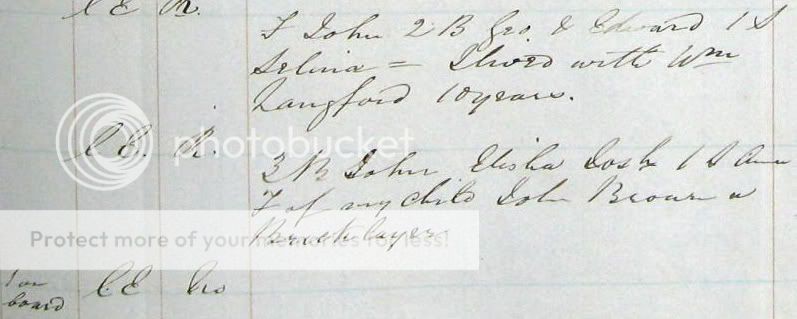 C E R.
F John 2 B Geo. & Edward 1 S
Selina = Lived with Wm
Langford 10 years.
C E. R.
3 B John Elisha Josh 1 S Ann
F of my child John Brown a
Bricklayer
1 on
board
C. E
photobucket
Protect more of your memories for less!